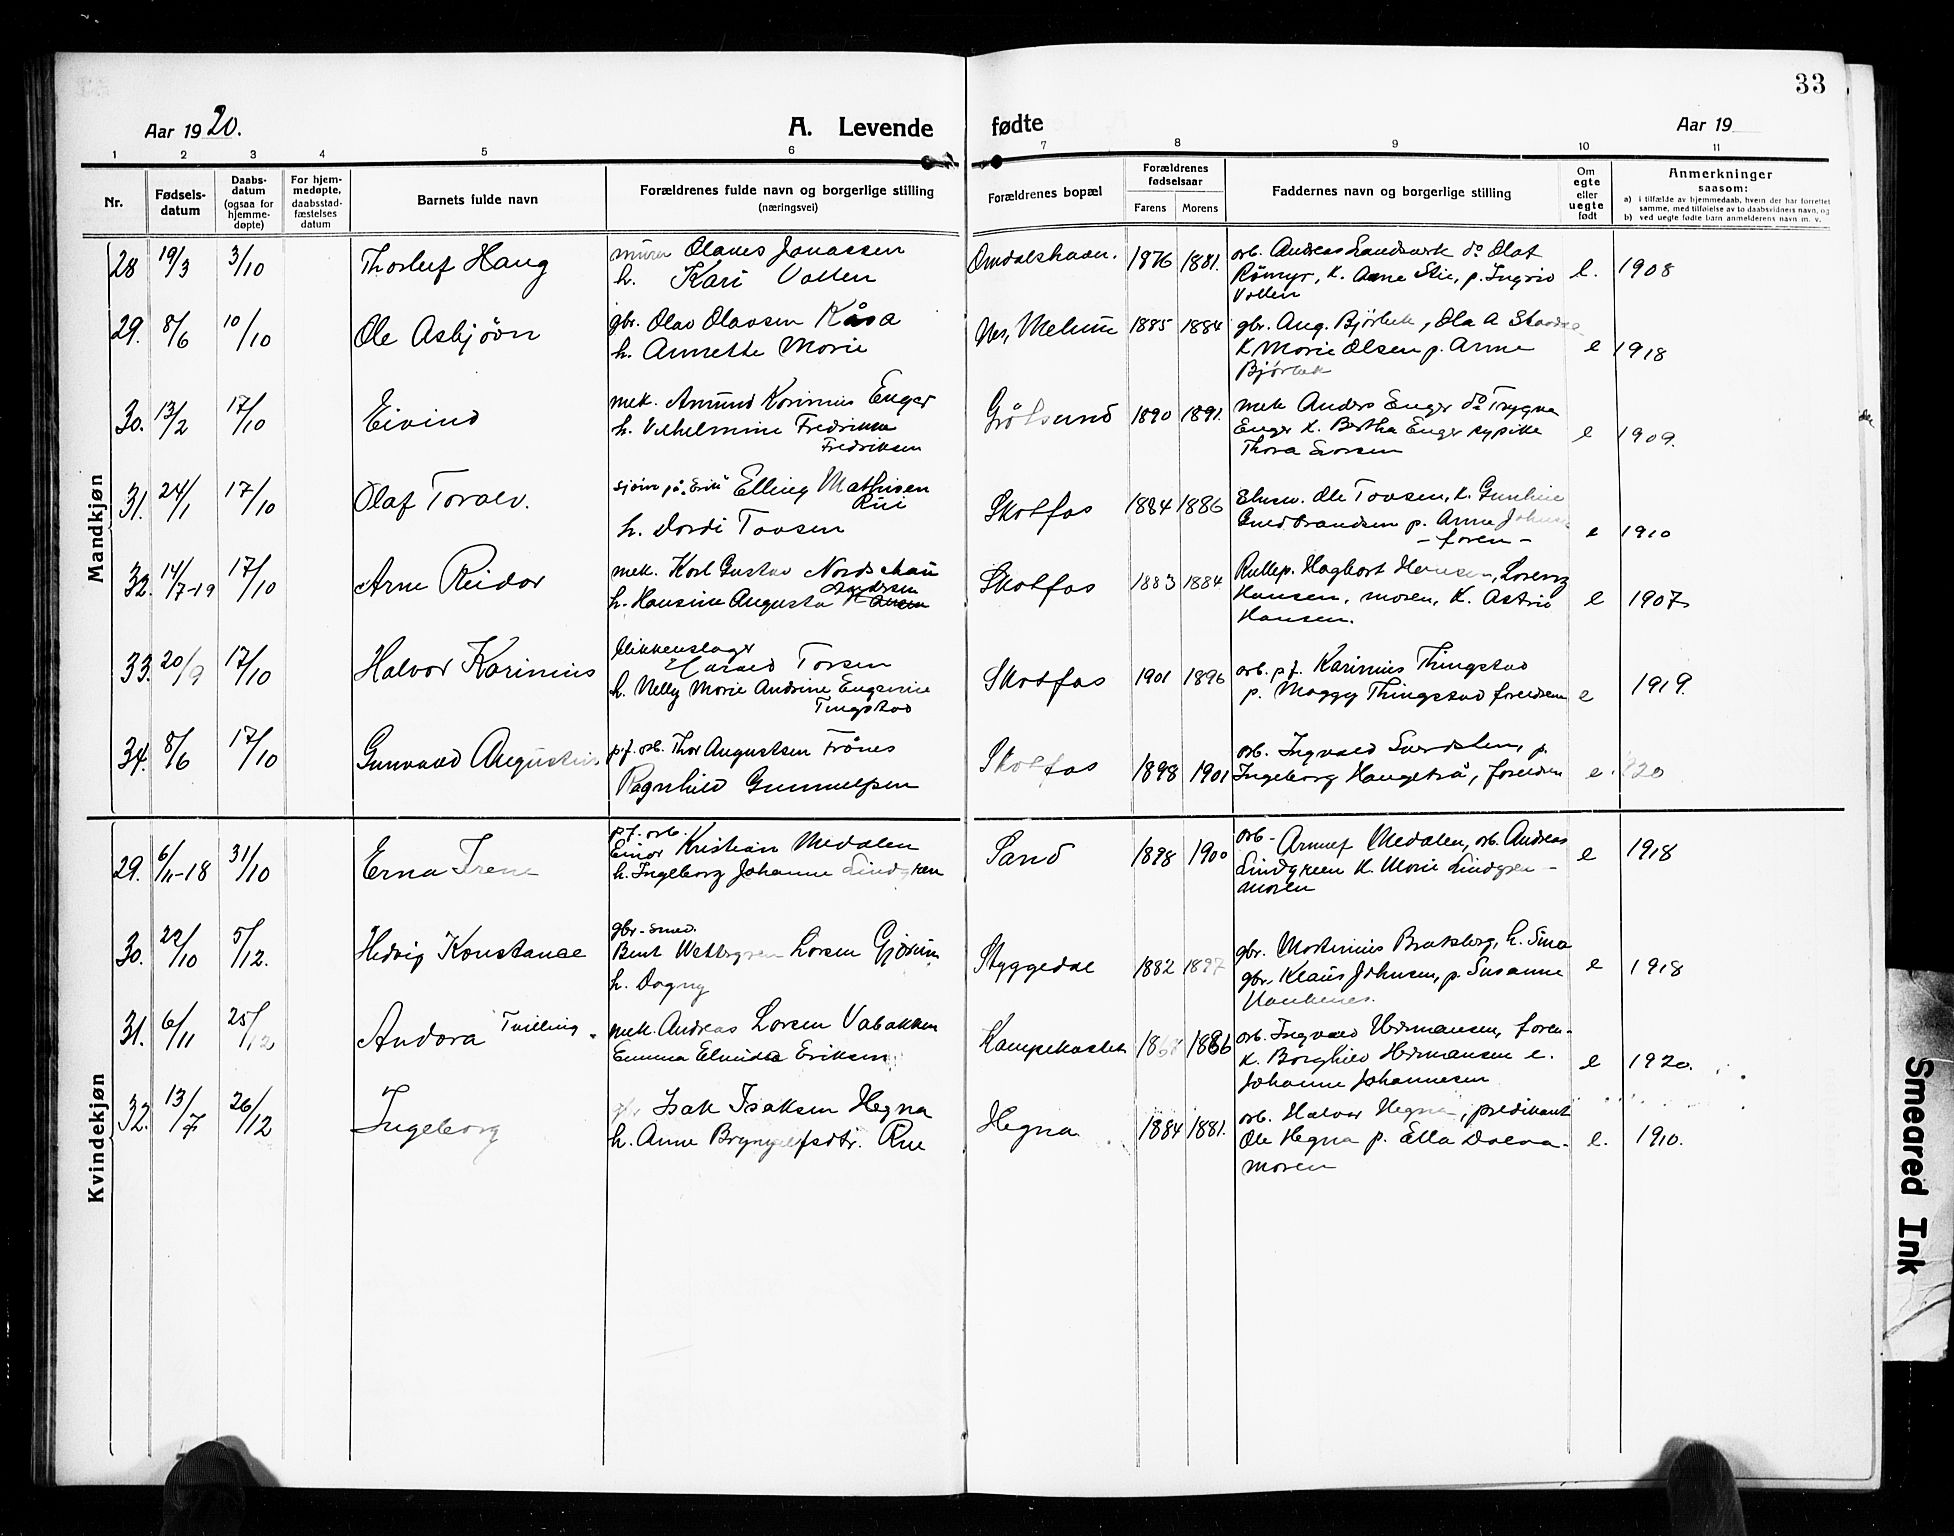 33
Aar 1920.
A. Levende
fødte
Aar 19
1 2 3 4 5 6 7 8 9 10 11
Nr.
Fødsels-
datum
Daabs-
datum
(ogsaa for
hjemme-
døpte)
For hjem-
medøpte,
daabsstad-
fæstelses
datum
Barnets fulde navn
Forældrenes fulde navn og borgerlige stilling
(næringsvei)
Forældrenes bopæl
Forældrenes
fødselsaar
Farens Morens
Faddernes navn og borgerlige stilling
Om
egte
eller
uegte
født
Anmerkninger
saasom:
a) i tilfælde av hjemmedaab, hvem der har forrettet
samme, med tilføielse av to daabsvidners navn, og
b) ved uegte fødte barn anmelderens navn m. v.
Mandkjøn
28 19/3 3/10 Thorleif Haug
murer Olaves Jonassen
h. Kari Vollen
Omdalshavn. 1876 1881.
arb. Andreas Landsverk do Olaf
Rømyr, k. Anne Stie, p. Ingrid
Vollen
e. 1908
29. 8/6 10/10 Ole Asbjørn
gbr. Olav Olavsen Kåsa
h. Annette Marie
Nes, Melum 1885 1884
gbr. Aug. Bjørbek, Ola A
k Marie Olsen p. Anne
Bjørbek
e 1918
30. 13/2 17/10 Eivind
mek. Amund Karinius Enger
h. Vilhelmine Fredrikke
Fredriksen
Gråtsund 1890 1891.
mek Anders Enger do Trygve
Enger k. Bertha Enger sypike
Thora
e 1909.
31. 24/1 17/10 Olaf Toralv.
Elling Mathisen
Rui
h. Dordi Tovsen
Skotfos 1884 1886
Ole Tovsen, k. Gunhild
Guldbrandsen p. Anne
- foren -
e 1910
32. 14/7-19 17/10 Arne Reidar
mek. Karl Gustav Nordschau
Andersen
h. Hansine Augusta Hansen
Skotfos 1883 1884
Hagbart Hansen, Lorentz
Hansen, moren, k. Astrid
Hansen.
e 1907
33. 20/9 17/10 Halvor Karinius
blikkenslager
Harald Torsen
h. Nelly Marie Andrine Eugenie
Tingstad
Skotfos 1901 1896
arb. p.f. Karinius Thingstad
p. Maggy Thingstad foreldrene
e 1919.
34. 8/6 17/10 Gunvald Augustin
p.f. arb. Thor Augustsen Frånes
Ragnhild Gunnulfsen
Skotfos 1898 1901
arb. Ingvald p.
Ingeborg Haugetrå, foreldrene
e. 20
Kvindekjøn
29. 6/11-18 31/10 Erna Irene
p.f. arb.
Einar Kristian Medalen
h. Ingeborg Johanne Lindgren
Sand 1898 1900
arb. Medalen, arb. Andreas
Lindgreen k. Marie Lindgren -
moren
e 1918
30. 22/10 5/12. Hedvig Konstanse
gbr-smed.
Bent Wettergren Larsen Gjerum
h. Dagny
Styggedal 1882 1897
gbr. Martinius Bratsberg, h. Sina
gbr. Klaus Johnsen, p. Susanne
e 1918
31. 6/11 25/12 Andora Tvilling.
mek. Andreas Larsen Vabakken
Emma Elvinda Eriksen
Kampekastet 1886
arb. Ingvald Hermansen, foren-
k. Borghild Hermansen e.
Johanne Johannesen
e 1920.
32. 13/7 26/12 Ingeborg
Isak Isaksen Hegna
h. Anne Bryngelfsdtr. Rue
Hegna 1884 1881.
arb. Halvor Hegna, predikant
Ole Hegna p. Ella Dalva-
moren
e. 1910.
Smeared Ink